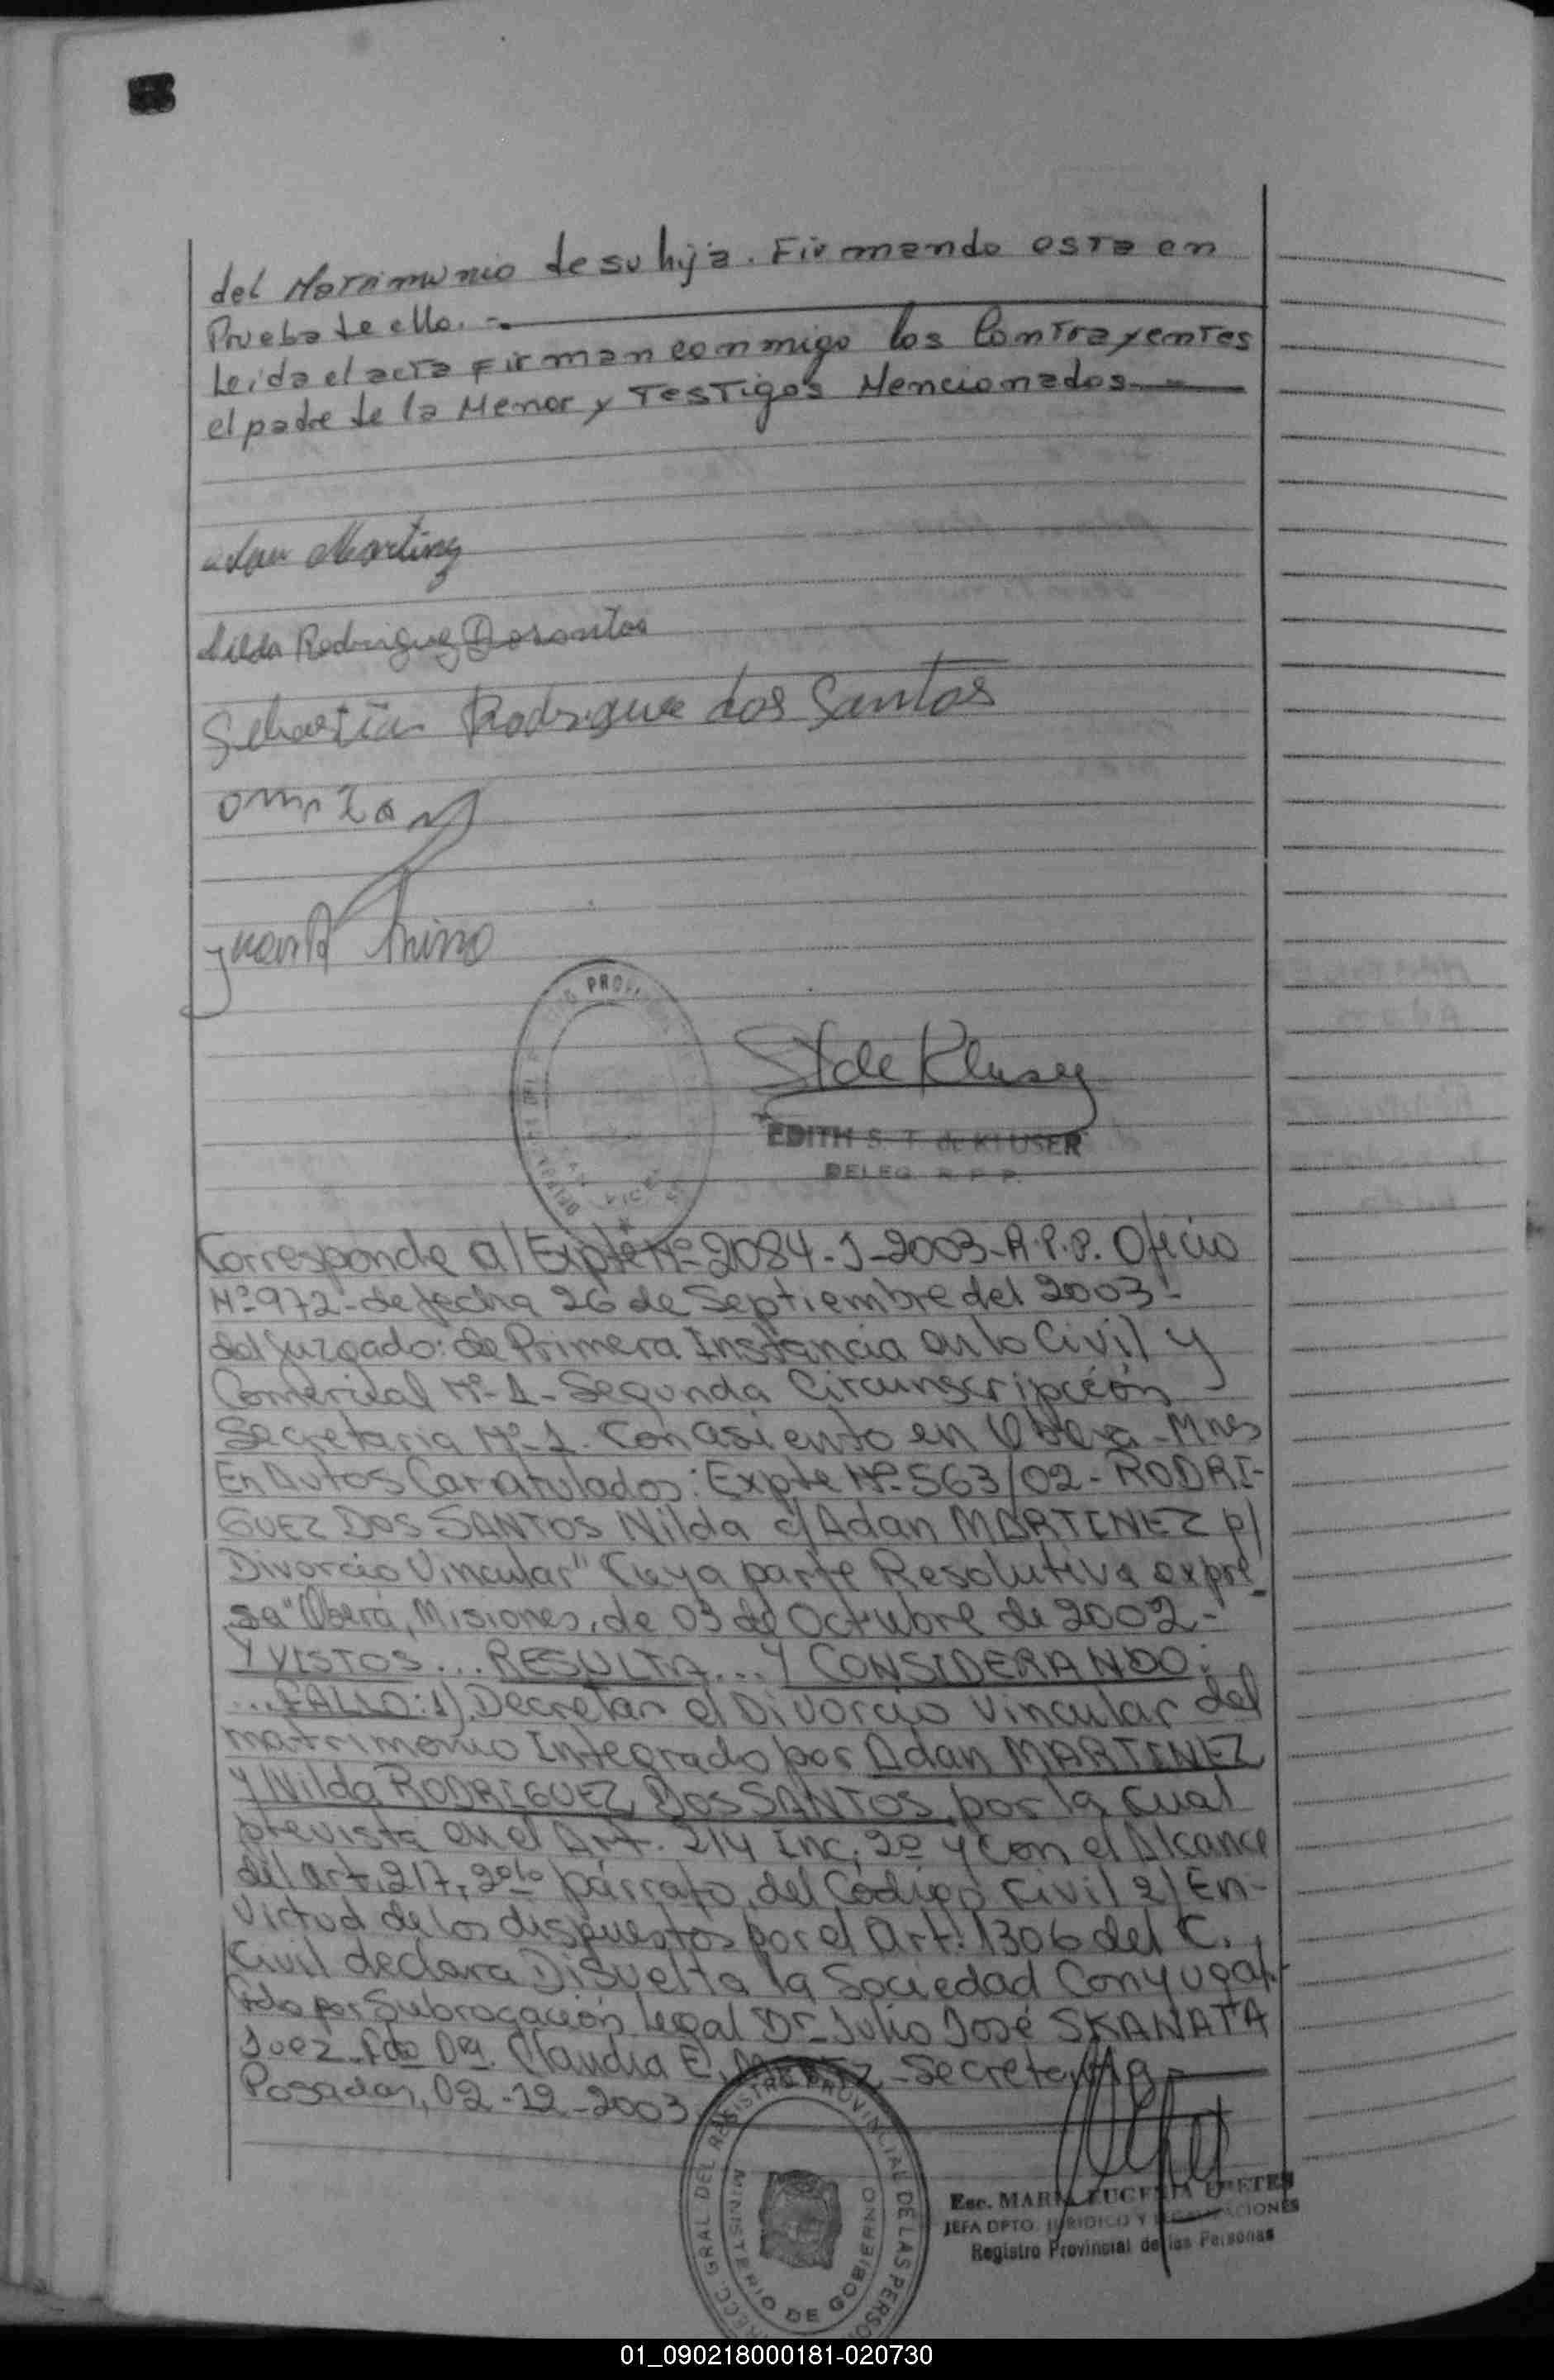 del Matrimonio de su hija. Firmando esta en
Prueba de ello. -.
Leida el acta Firman conmigo los Contrayentes
el padre de la Menor y Testigos Mencionados
Adan Martinez
Nilda Rodriguez Dosantos
Sebastian Rodriguez dos Santos
St de Kluser
EDITH S. T. de KLUSER
DELEG. R. P. P.
Corresponde al Expte Nº 2084-J-2003-R.P.P. Oficio
Nº 972- de fecha 26 de Septiembre del 2003-
del Juzgado: de Primera Instancia en lo Civil y
Comercial Nº-1- Segunda Circunscripción
Secretaria Nº-1. Con asiento en Obera - Mnes
En Autos Caratulados: Expte Nº-563/02- RODRI-
GUEZ DOS SANTOS Nilda c/ Adan MARTINEZ p/
Divorcio Vincular" Cuya parte Resolutiva expre-
sa "Oberá, Misiones, de 03 de Octubre de 2002-
Y VISTOS... RESULTA... Y CONSIDERANDO:
...FALLO: 1) Decretar el Divorcio Vincular del
matrimonio Integrado por Adan MARTINEZ
y Nilda RODRIGUEZ DOS SANTOS, por la cual
prevista en el Art. 214 Inc. 2º y con el Alcance
del art. 217, 2do párrafo, del Código Civil 2) En-
Virtud de los dispuestos por el Art. 1306 del C.
Civil declara Disuelta la Sociedad Conyugal.
Fdo por Subrogación legal Dr. Julio José SKANATA
Juez. Fdo Dra. Claudia E. - Secretaria
Posadas, 02-12-2003
REGISTRO PROVINCIAL DE LAS PERSO
RECC. GRAL DEL
MINISTERIO DE GOBIERNO
Esc. MARIA EUGENIA
JEFA DPTO. JURIDICO Y
Registro Provincial de las Personas
01_090218000181-020730